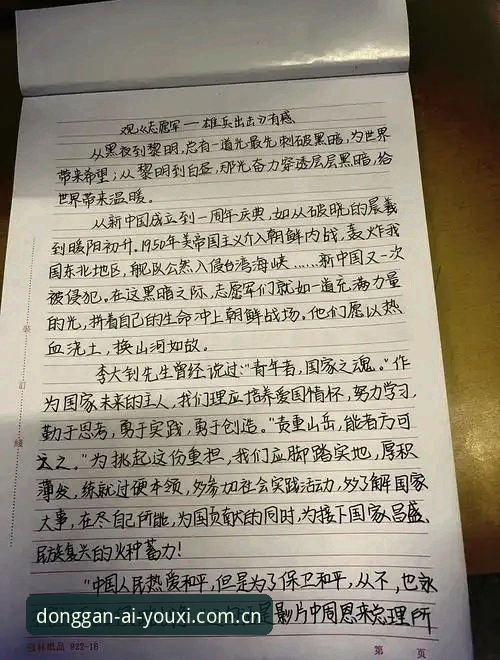 观《志愿军——雄兵出击》有感
从黑夜到黎明,总有一道光最先刺破黑暗,为世界
带来希望;从黎明到白昼,那光奋力穿透层层黑暗,给
世界带来温暖。
从新中国成立到一周年庆典,如从破晓的晨羲
到暖阳初升。1950年美帝国主义介入朝鲜内战,轰炸我
国东北地区,舰队公然入侵台湾海峡……新中国又一次
被侵犯。在这黑暗之际,志愿军们就如一道充满力量
的光,拼着自己的生命冲上朝鲜战场。他们愿以热
血浇土,换山河如故。
李大钊先生曾经说过:“青年者,国家之魂。”作
为国家未来的主人,我们理应培养爱国情怀,努力学习,
勤于思考,勇于实践,勇于创造。“责重山岳,能者方可
当之。”为挑起这份重担,我们应脚踏实地,厚积
薄发,练就过硬本领,多参加社会实践活动,多了解国家
大事,在尽自己所能,为国贡献的同时,为接下国家昌盛、
民族复兴的火种蓄力!
“中国人民热爱和平,但是为了保卫和平,从不,也永
是影片中周恩来总理所
donggan-ai-youxi.com.cn
强林纸品 922-16
第 页
装 订 线